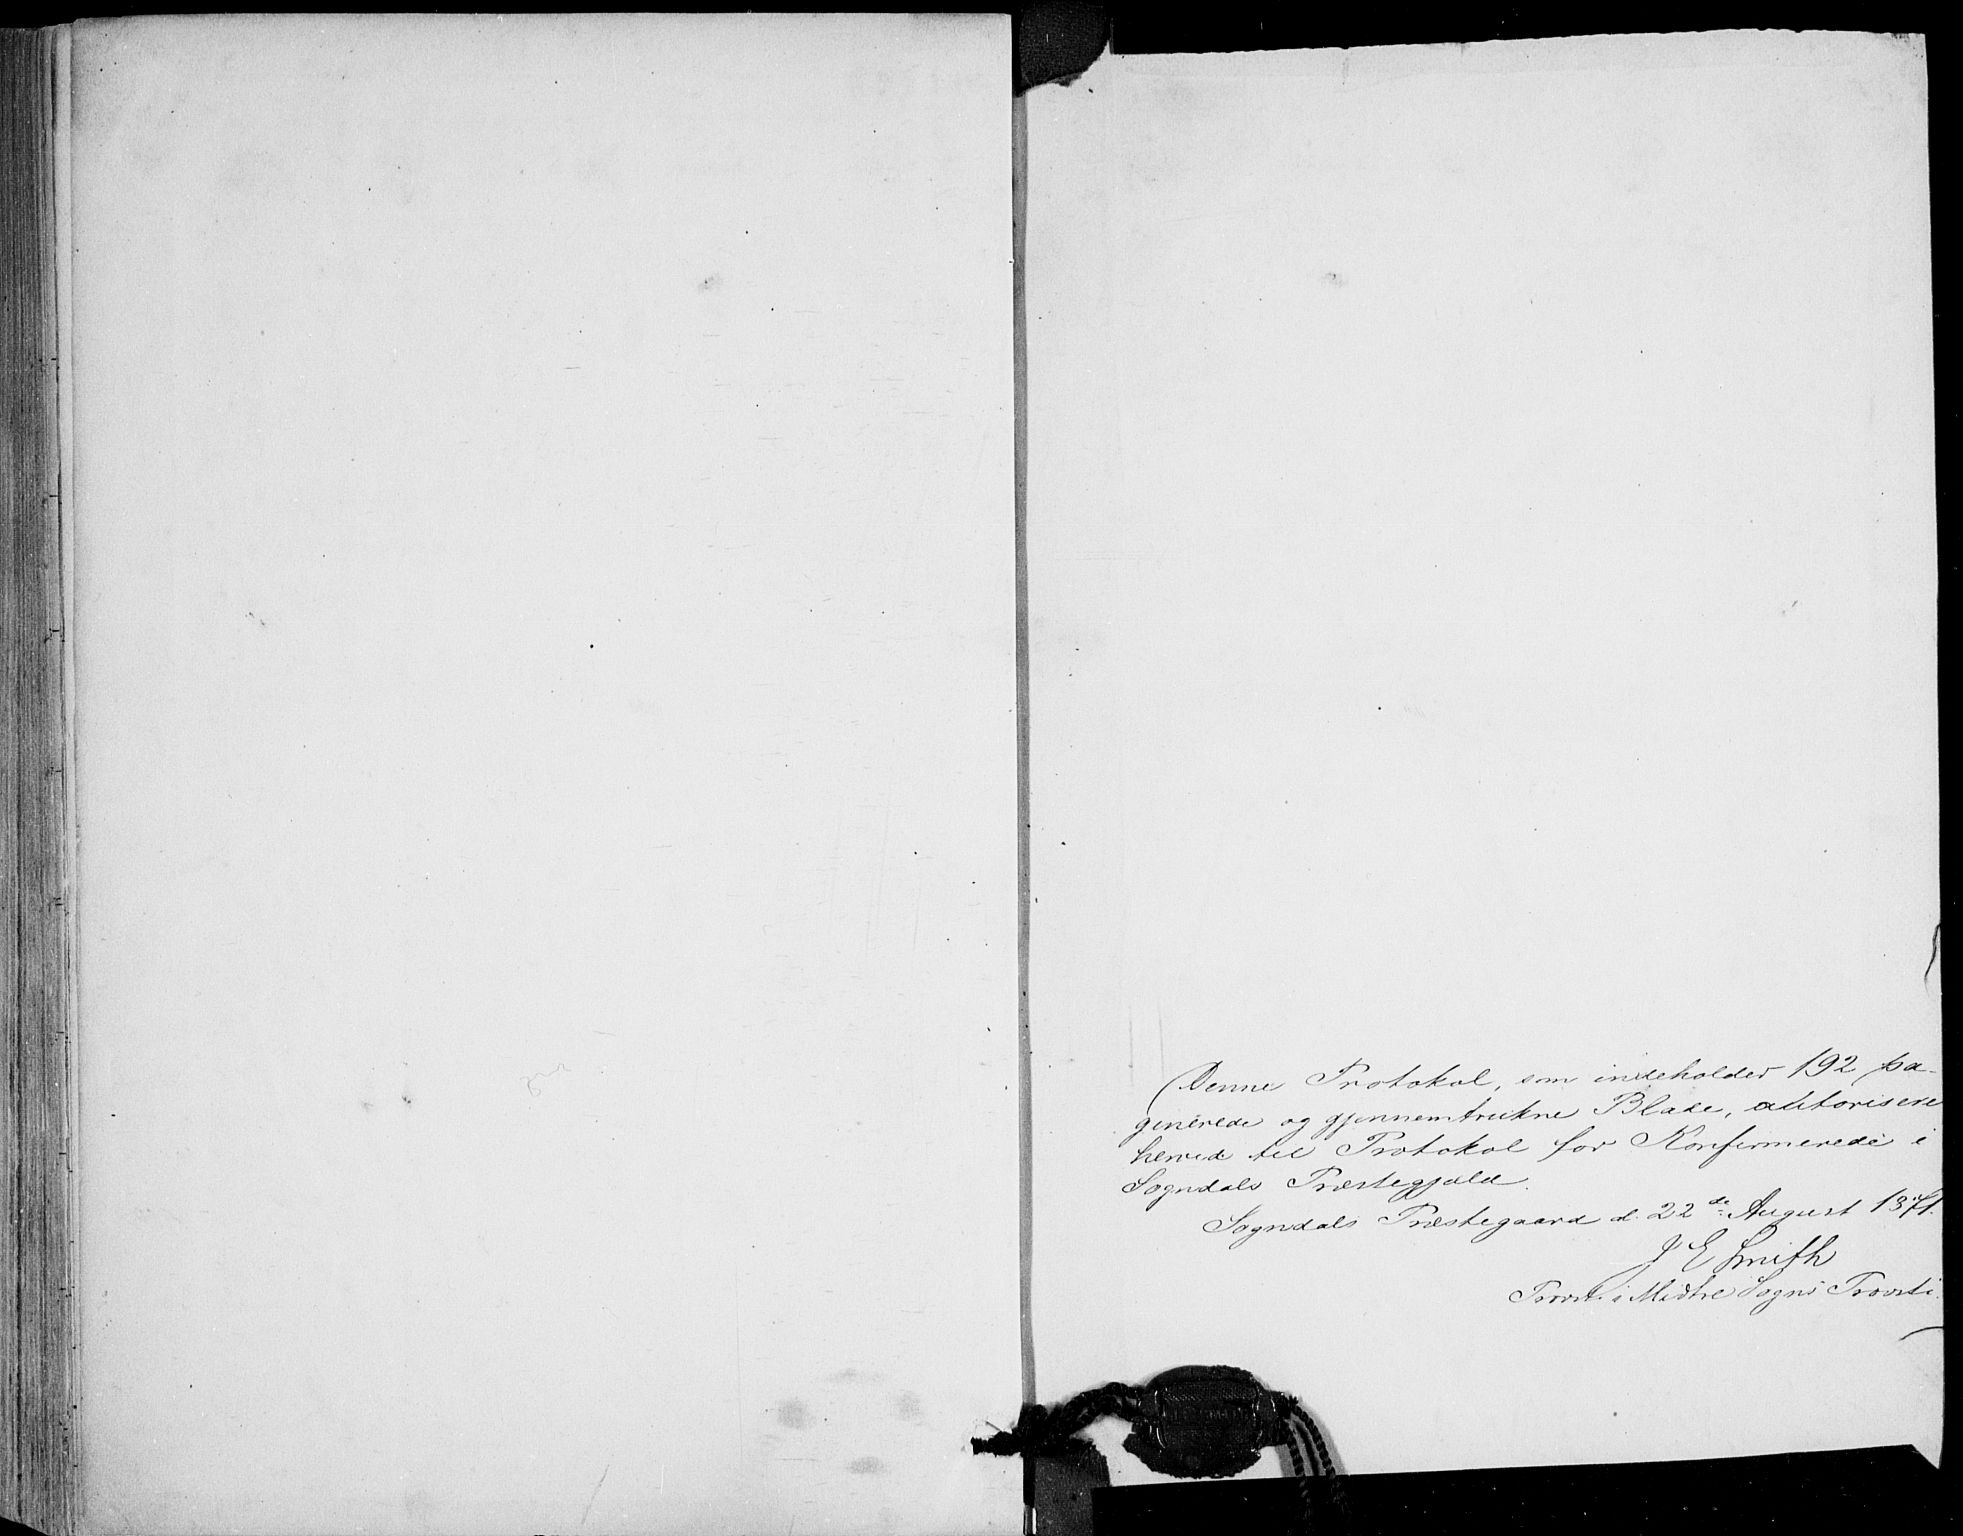 Denne Protokol, som indeholder 192 pa-
ginerede og gjennemtrukne Blade, autoriseres
herved til Protokol for Konfirmerede i
Sogndals Præstegjæld.
Sogndals Præstegaard d. 22de August 1871.
J E Smith
Provst i Midtre Sogns Provsti.